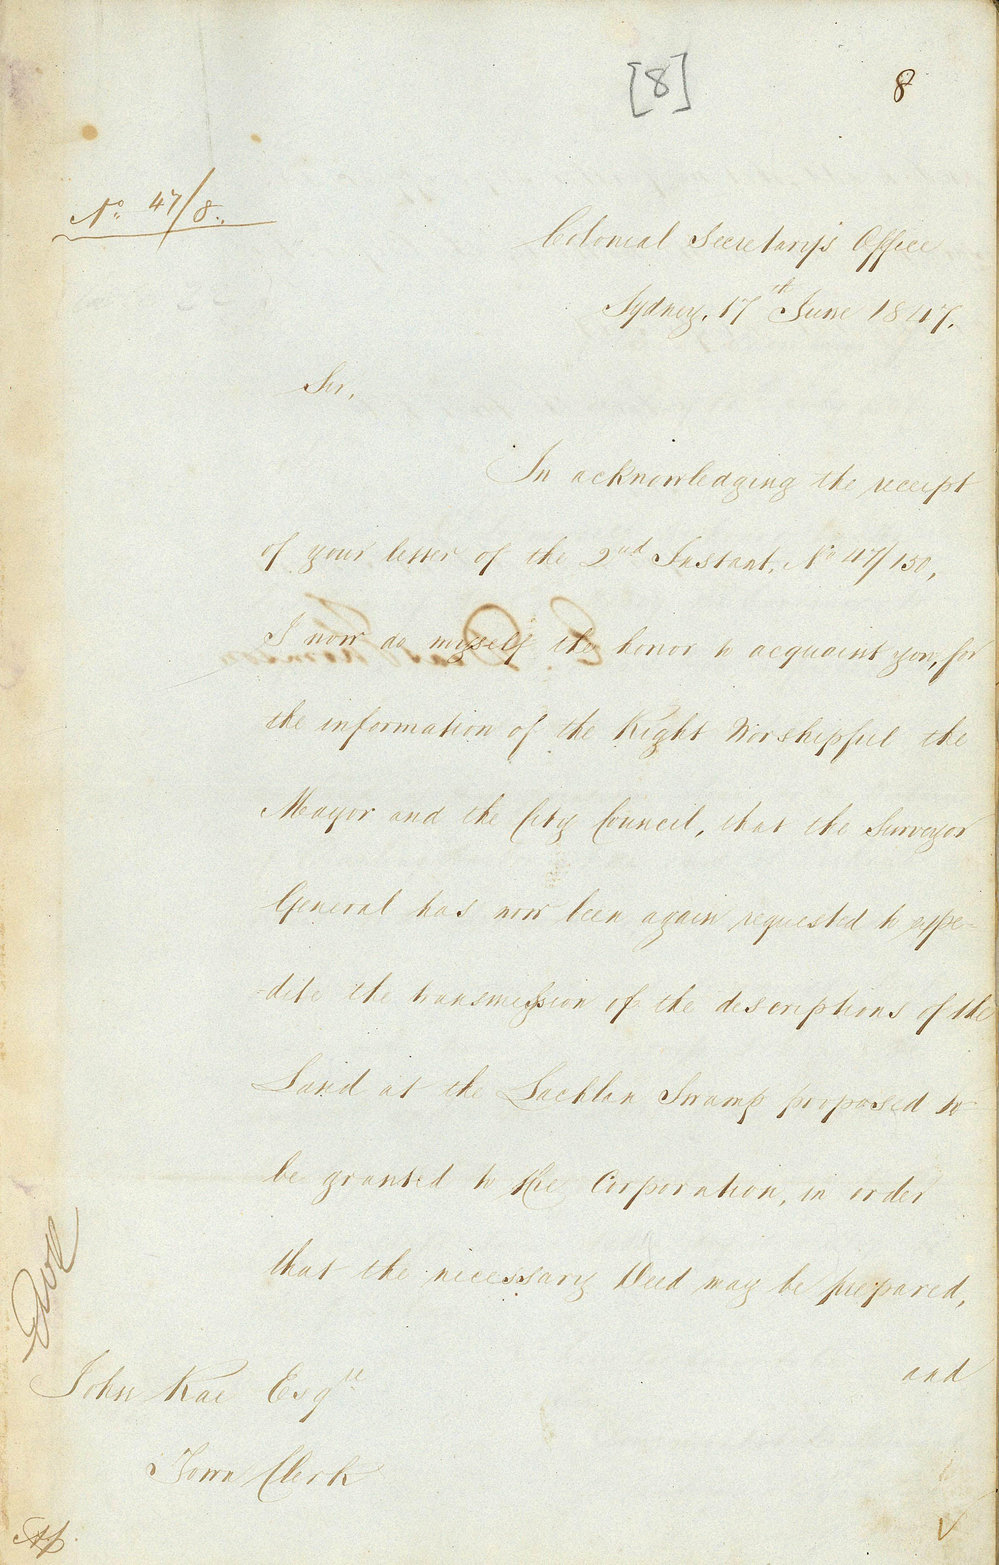 [8]
8
No. 47/8.
Colonial Secretary's Office
Sydney, 17th June 1847.
Sir,
In acknowledging the receipt
of your letter of the 2nd Instant, No 47/150,
I now do myself the honor to acquaint you, for
the information of the Right Worshipful the
Mayor and the City Council, that the Surveyor
General has now been again requested to expe-
-dite the transmission of the descriptions of the
Land at the Lachlan Swamp proposed to
be granted to the Corporation, in order
that the necessary Deed may be prepared,
and
John Rae Esqre
Town Clerk